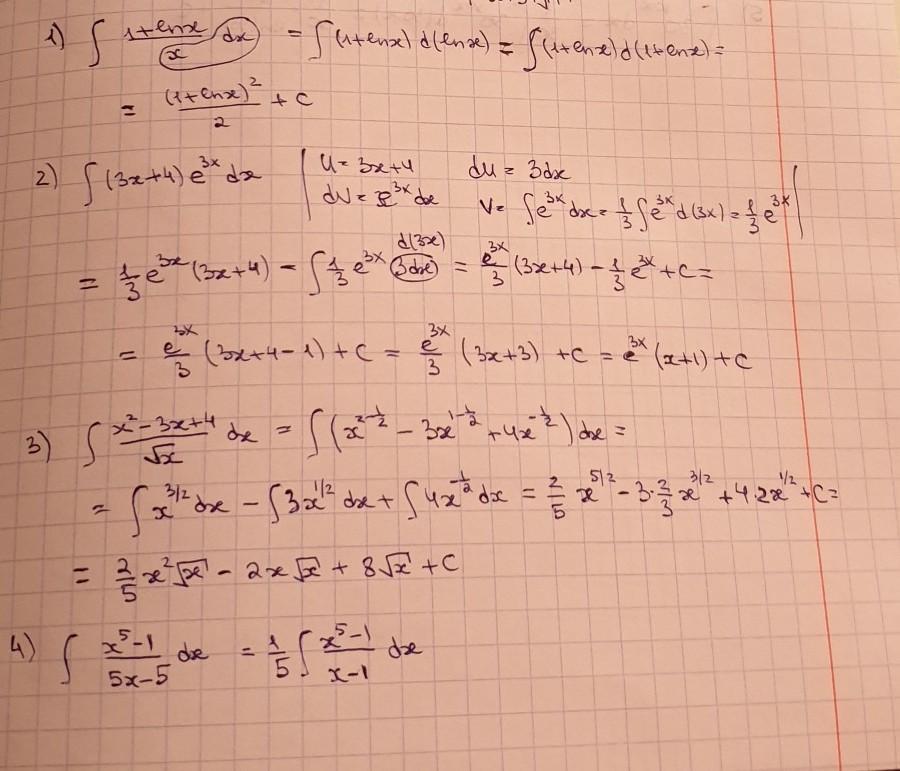 1) ∫ (1+lnx)/x dx = ∫(1+lnx) d(lnx) = ∫(1+lnx)d(1+lnx) =
= (1+lnx)²/2 + C
2) ∫(3x+4)e^{3x} dx | U = 3x+4 dU = 3dx
dV = e^{3x}dx V = ∫e^{3x}dx = 1/3 ∫e^{3x} d(3x) = 1/3 e^{3x} |
d(3x)
= 1/3 e^{3x}(3x+4) − ∫ 1/3 e^{3x} 3dx = e^{3x}/3 (3x+4) − 1/3 e^{3x} + C =
= e^{3x}/3 (3x+4−1) + C = e^{3x}/3 (3x+3) + C = e^{3x}(x+1) + C
3) ∫ (x²−3x+4)/√x dx = ∫(x^{2−1/2} − 3x^{1−1/2} + 4x^{−1/2})dx =
= ∫x^{3/2}dx − ∫3x^{1/2}dx + ∫4x^{−1/2}dx = 2/5 x^{5/2} − 3·2/3 x^{3/2} + 4·2x^{1/2} + C =
= 2/5 x²√x − 2x√x + 8√x + C
4) ∫ (x⁵−1)/(5x−5) dx = 1/5 ∫ (x⁵−1)/(x−1) dx